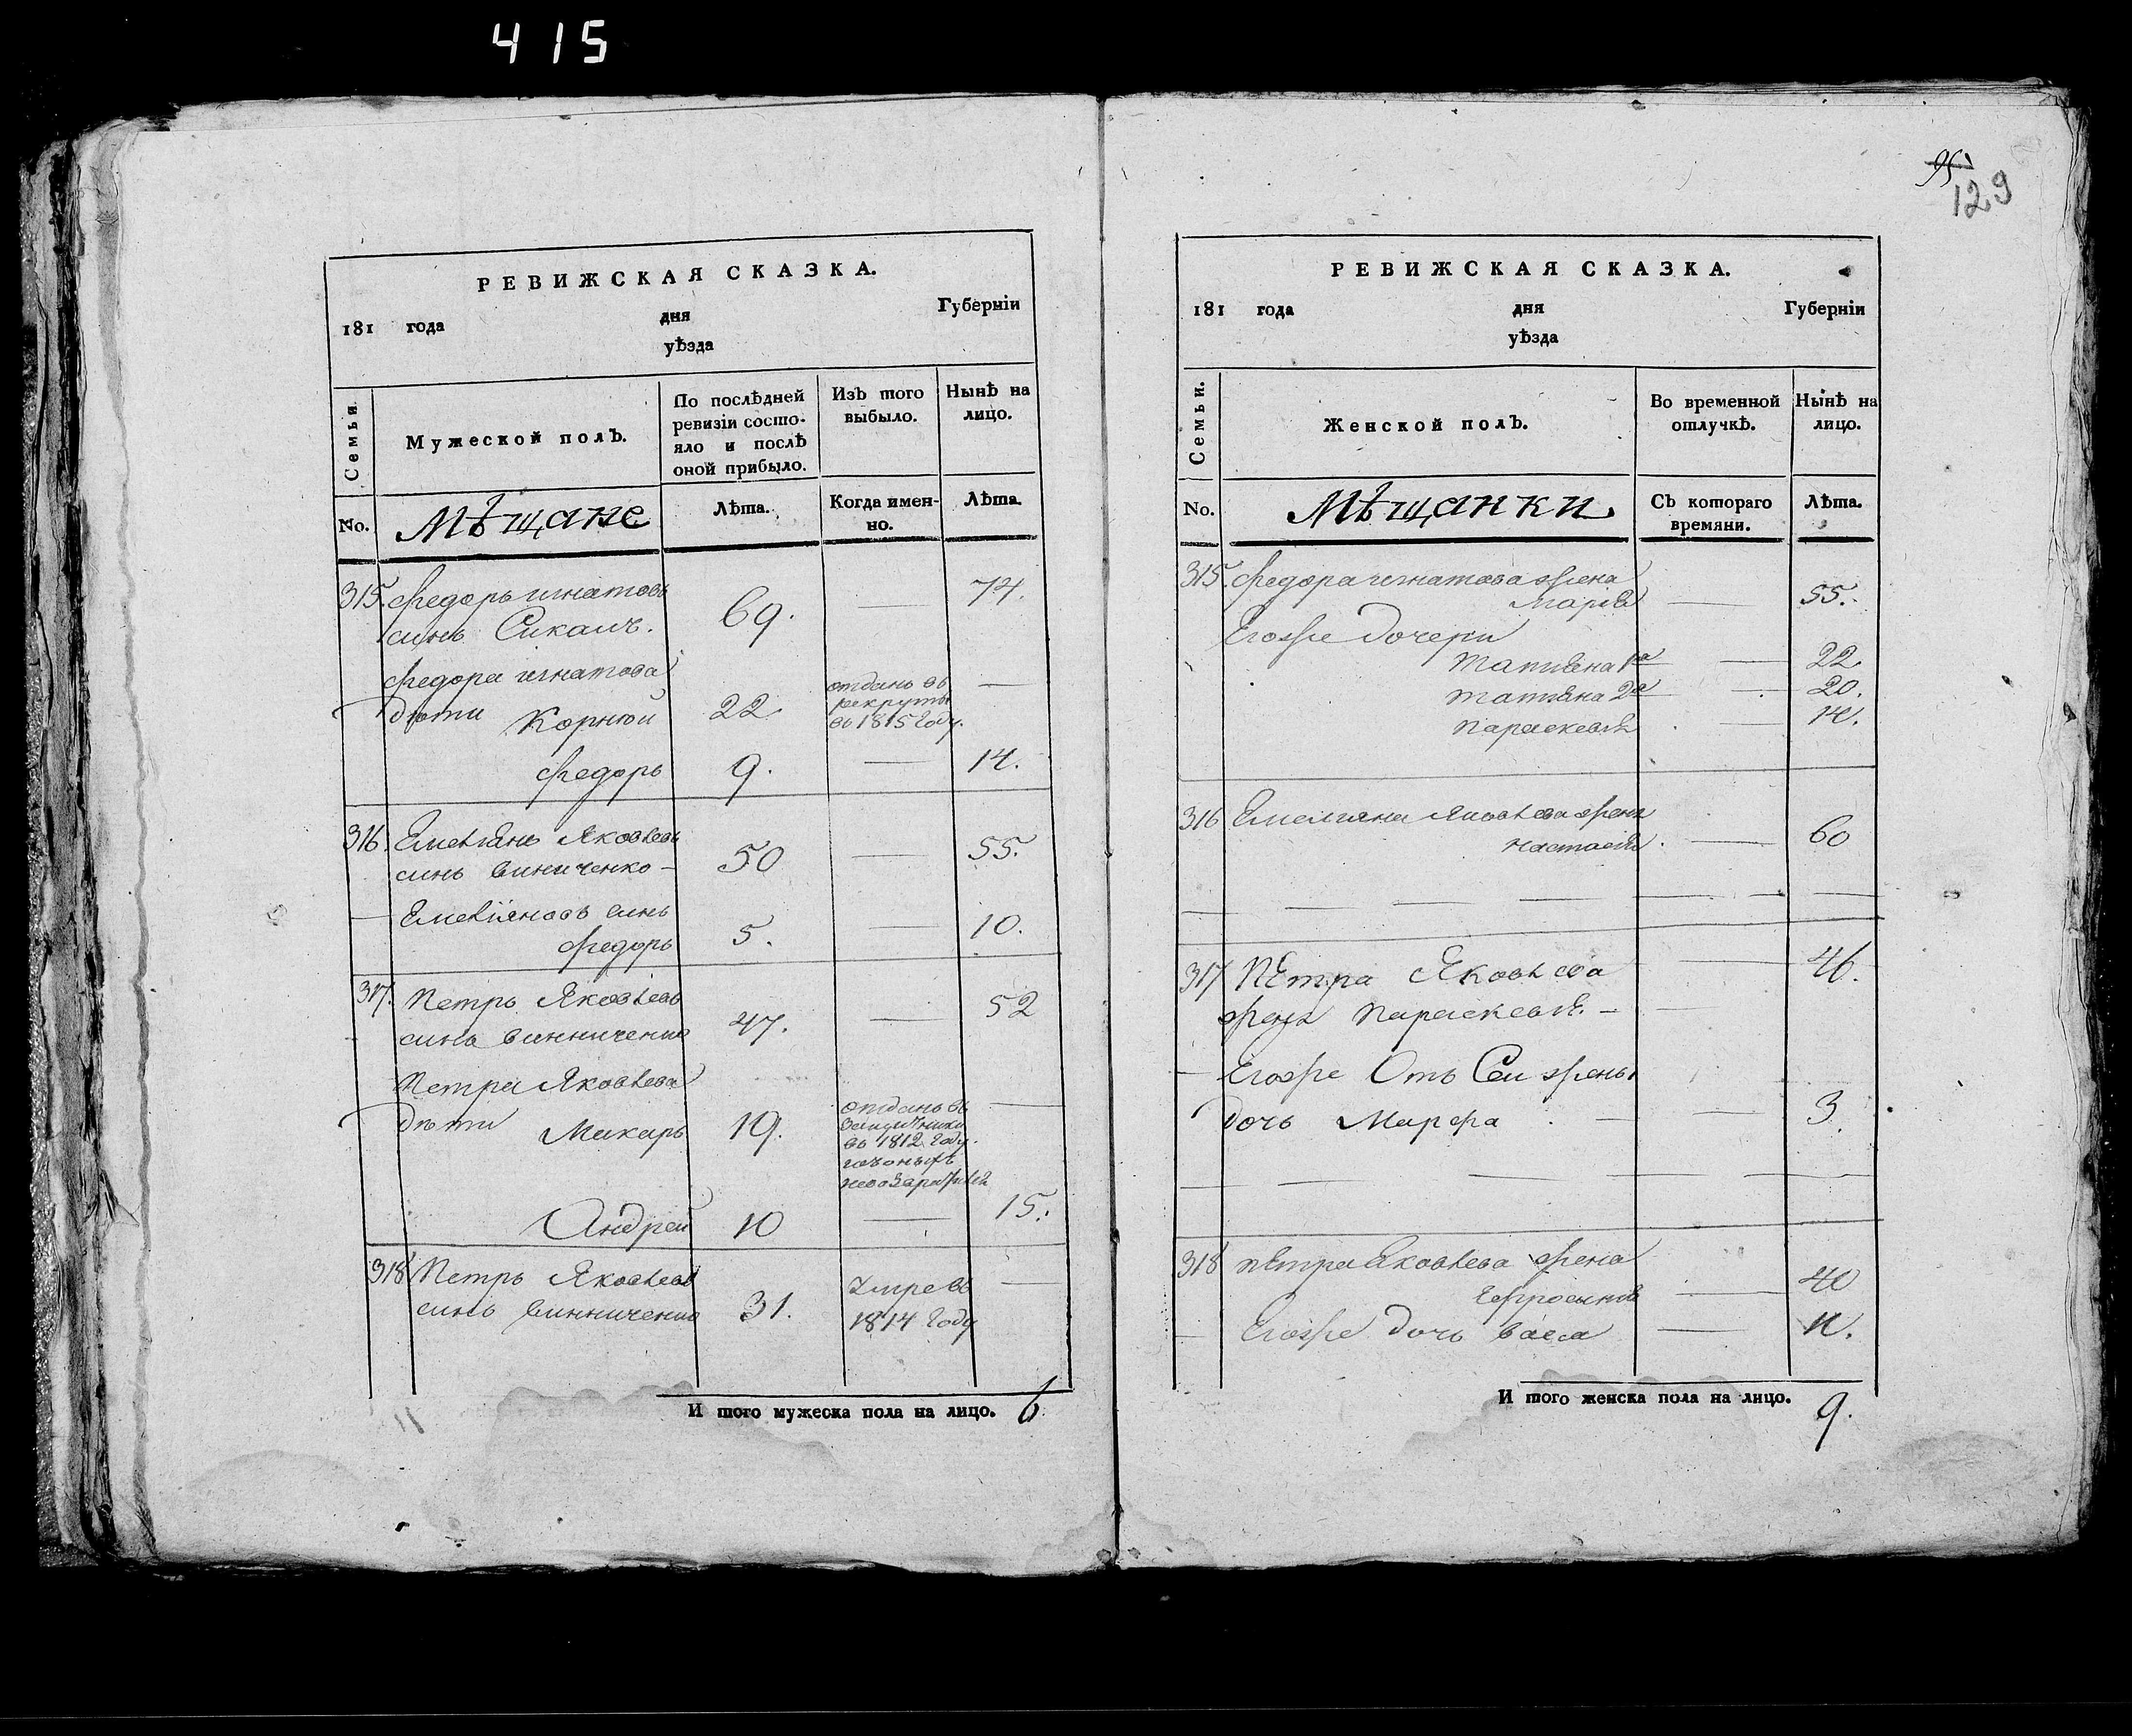 415
95
129
РЕВИЖСКАЯ СКАЗКА.
181 года дня Губерніи
уѣзда
Семьи.
Мужеской полъ.
По послѣдней ревизіи состо-
яло и послѣ
оной прибыло.
Изъ того выбыло.
Нынѣ на лицо.
No. Мѣщане
Лѣта.
Когда имен-
но.
Лѣта.
315. Федоръ игнатовъ
синъ Сикачъ. 69. — 74.
Федора игнатова
дѣти Корнѣй 22. отданъ въ
рекруты
въ 1815 Году. —
Федоръ 9. — 14.
316. Емелянъ Яковлевъ
синъ Виниченко — 50 — 55.
— Емеліяновъ синъ
Федоръ 5. — 10.
317. Петръ Яковлевъ
синъ Винниченко 47. — 52
Петра Яковлева
дѣти Макаръ 19. отданъ въ
въ 1812 Году. —
Андрей 10 — 15.
318 Петръ Яковлевъ
синъ Винниченко 31. Умре въ
1814 Году —
И того мужеска пола на лицо. 6.
РЕВИЖСКАЯ СКАЗКА.
181 года дня Губерніи
уѣзда
Семьи.
Женской полъ.
Во временной отлучкѣ.
Нынѣ на лицо.
No. Мѣщанки
Съ котораго времяни.
Лѣта.
315. Федора игнатова жена
Марія — 55.
Егоже Дочери
Татіяна 1я — 22
Татіяна 2я — 20.
Параскевія — 14.
316 Емеляна Яковлева жена
Настасія — 60
317 Петра Яковлева — 46.
жена Параскевія. —
— Егоже Отъ Сей жены
дочь Марфа — 3.
318 Петра Яковлева жена
Ефросинія — 40
— Егоже дочь Васса — 11.
И того женска пола на лицо. 9.